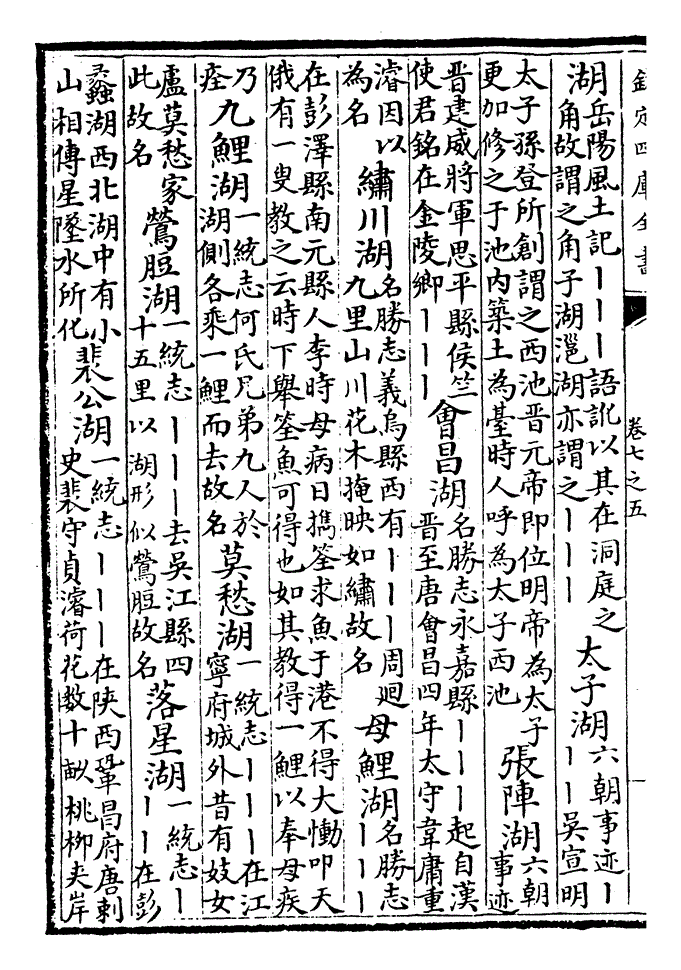 欽定四庫全書
卷七之五
湖岳陽風土記｜｜｜語訛以其在洞庭之
角故謂之角子湖灉湖亦謂之｜｜｜
太子湖六朝事迹｜
｜｜吳宣明
太子孫登所創謂之西池晉元帝即位明帝為太子
更加修之于池内築土為臺時人呼為太子西池
張陣湖六朝
事迹
晉建威將軍思平縣侯竺
使君銘在金陵鄉｜｜｜
會昌湖名勝志永嘉縣｜｜｜起自漢
晉至唐會昌四年太守韋庸重
濬因以
為名
繡川湖名勝志義烏縣西有｜｜｜周廻
九里山川花木掩映如繡故名
母鯉湖名勝志
｜｜｜
在彭澤縣南元縣人李時母病日攜筌求魚于港不得大慟叩天
俄有一叟教之云時下舉筌魚可得也如其教得一鯉以奉母疾
乃
痊
九鯉湖一統志何氏兄弟九人於
湖側各乘一鯉而去故名
莫愁湖一統志｜｜｜在江
寧府城外昔有妓女
盧莫愁家
此故名
鶯脰湖一統志｜｜｜去吳江縣四
十五里以湖形似鶯脰故名
落星湖一統志｜
｜｜在彭
蠡湖西北湖中有小
山相傳星墜水所化
裴公湖一統志｜｜｜在陝西鞏昌府唐刺
史裴守貞濬荷花数十畝桃柳夾岸